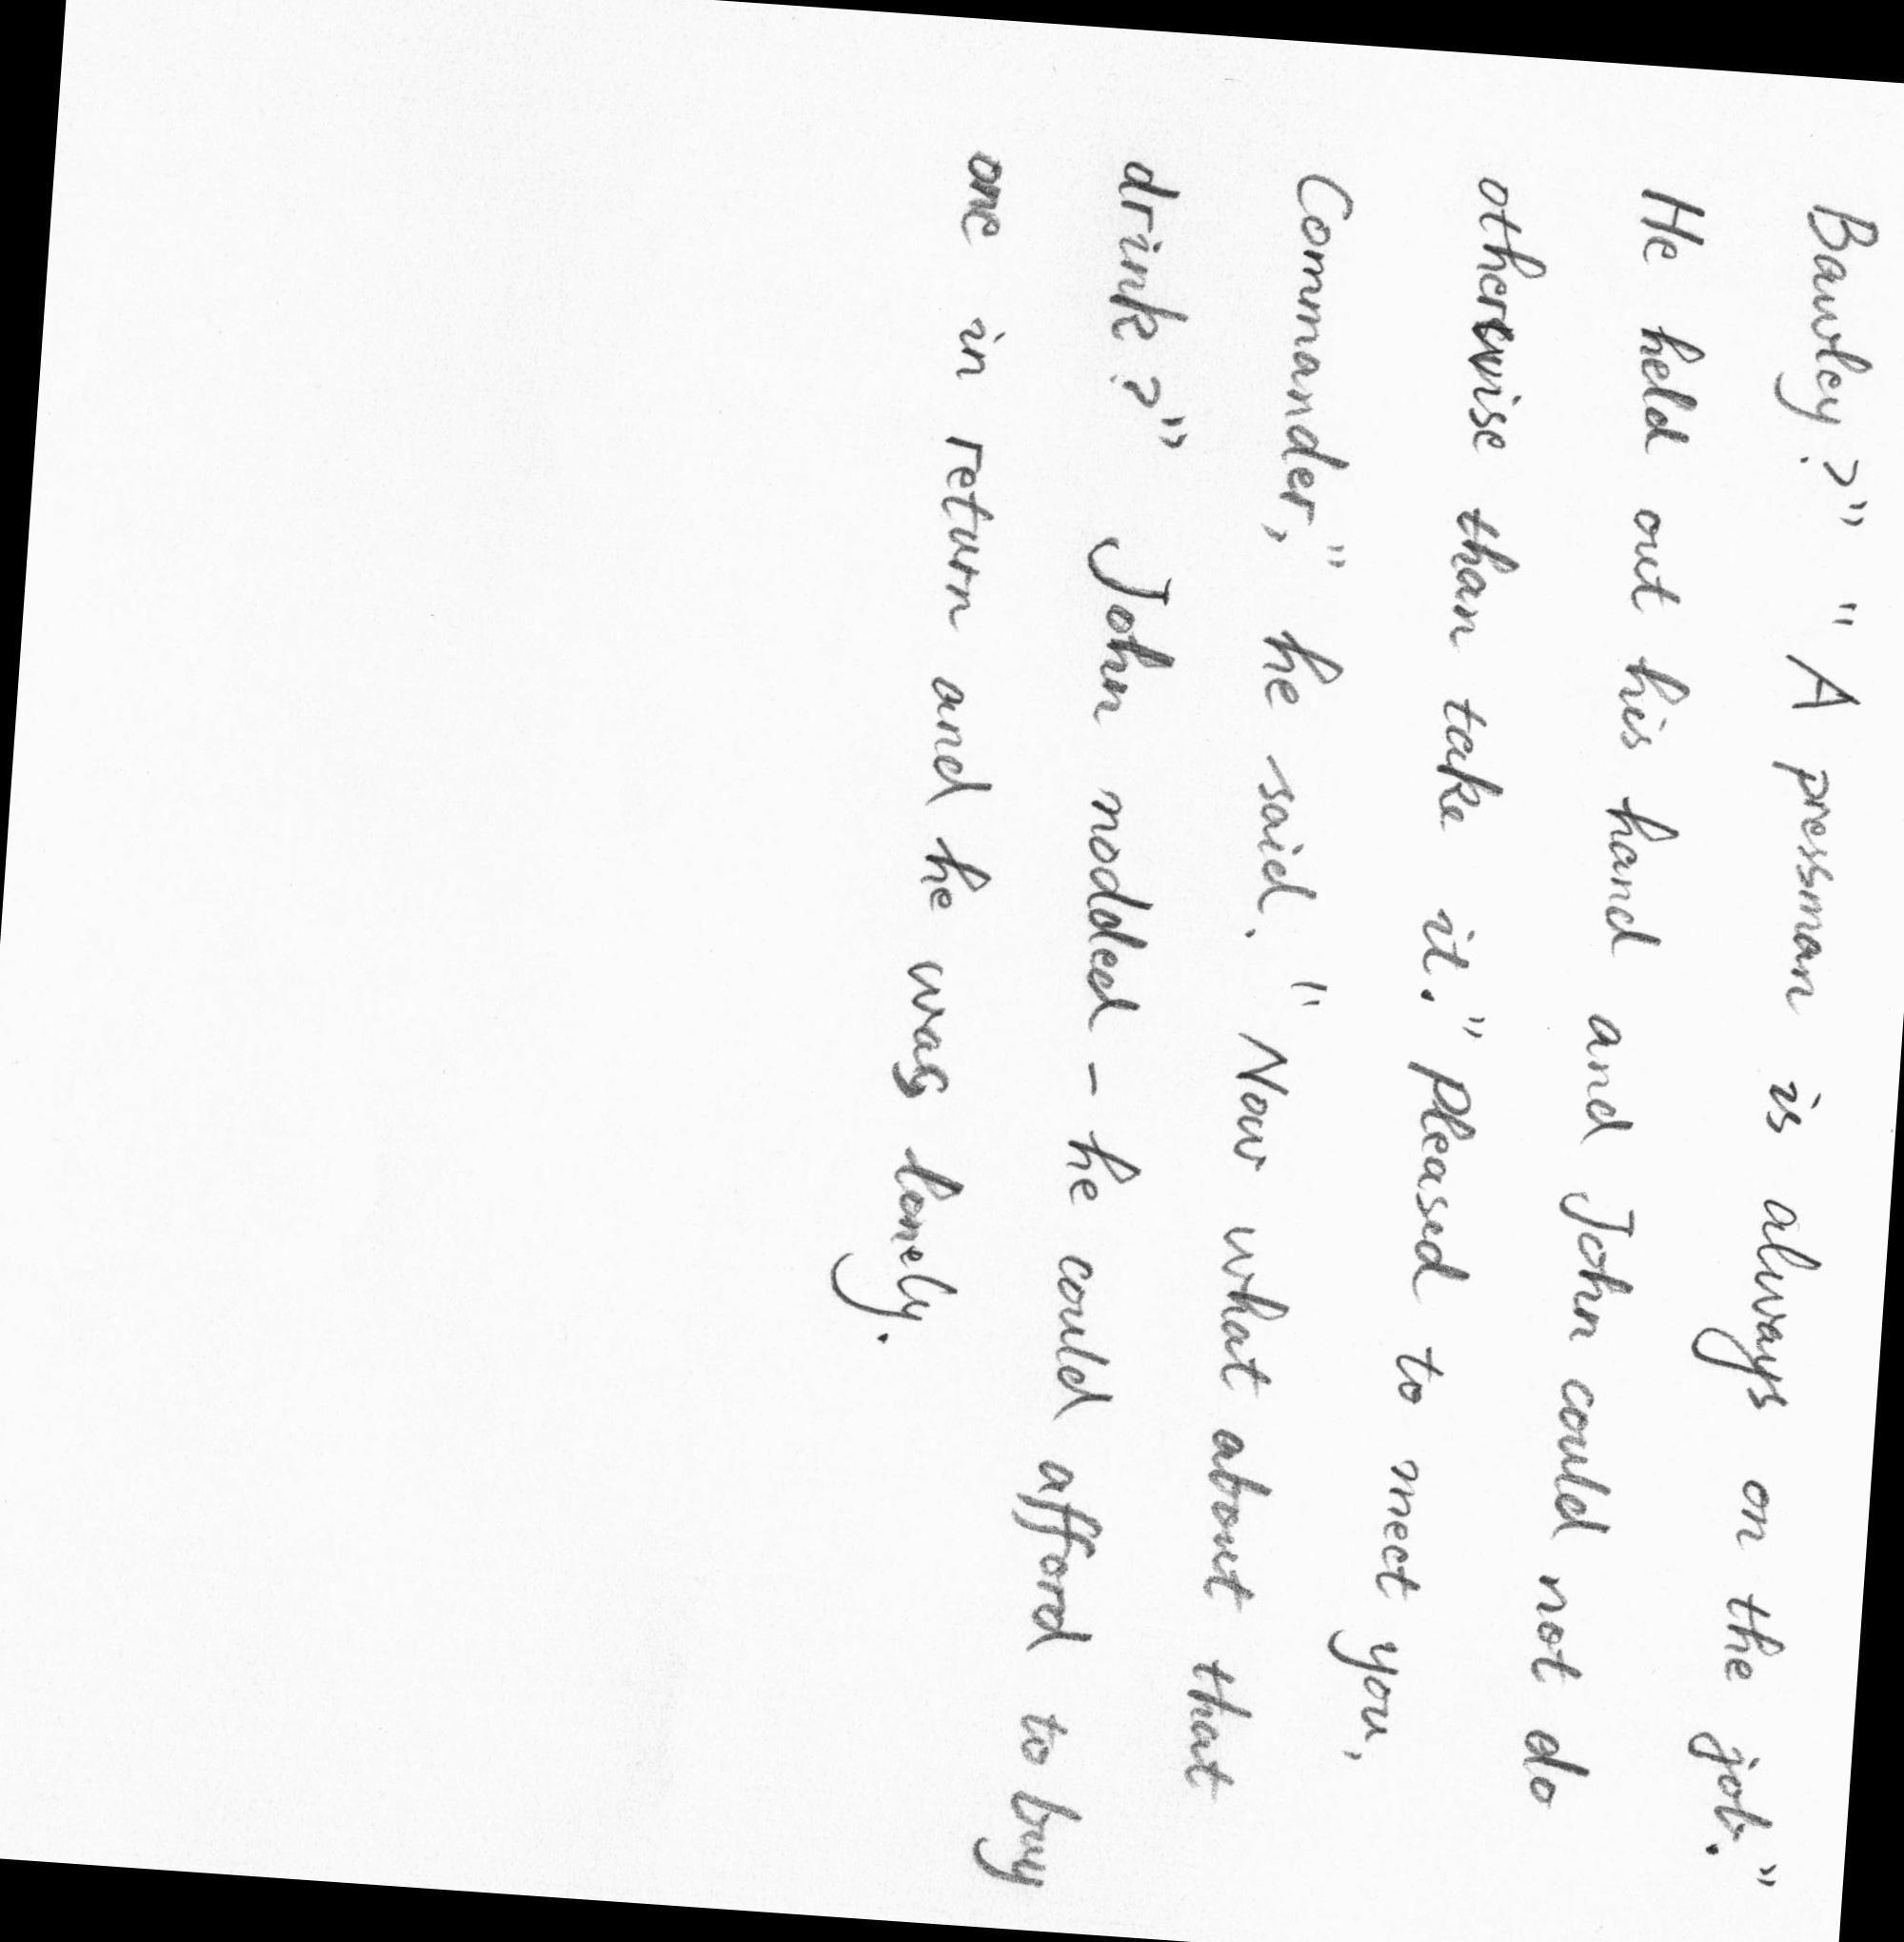 Bawley?" "A pressman is always on the job."
He held out his hand and John could not do
otherwise than take it." Pleased to meet you,
Commander," he said. "Now what about that
drink?" John nodded - he could afford to buy
one in return and he was lonely.